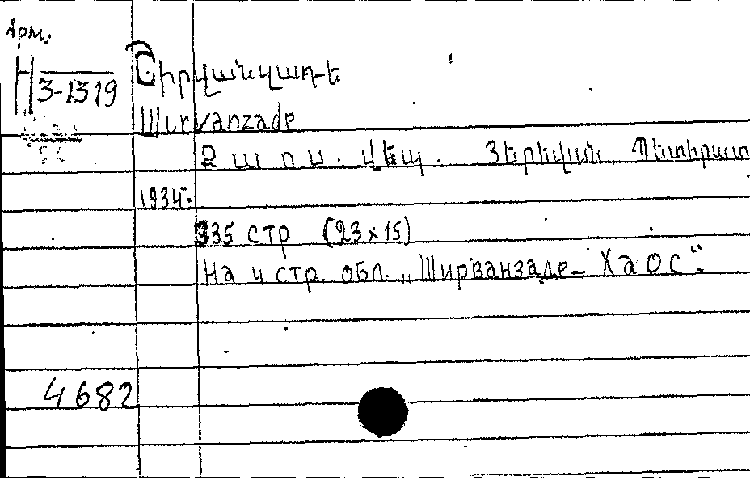 Арм.
Н 3-1319
Շիրվանզադե
Širvanzade
Քաոս. Վեպ. Յերեվան Պետհրատ
1934.
335 стр (23х15)
На 4 стр. обл. „Ширванзаде- Хаос".
4682